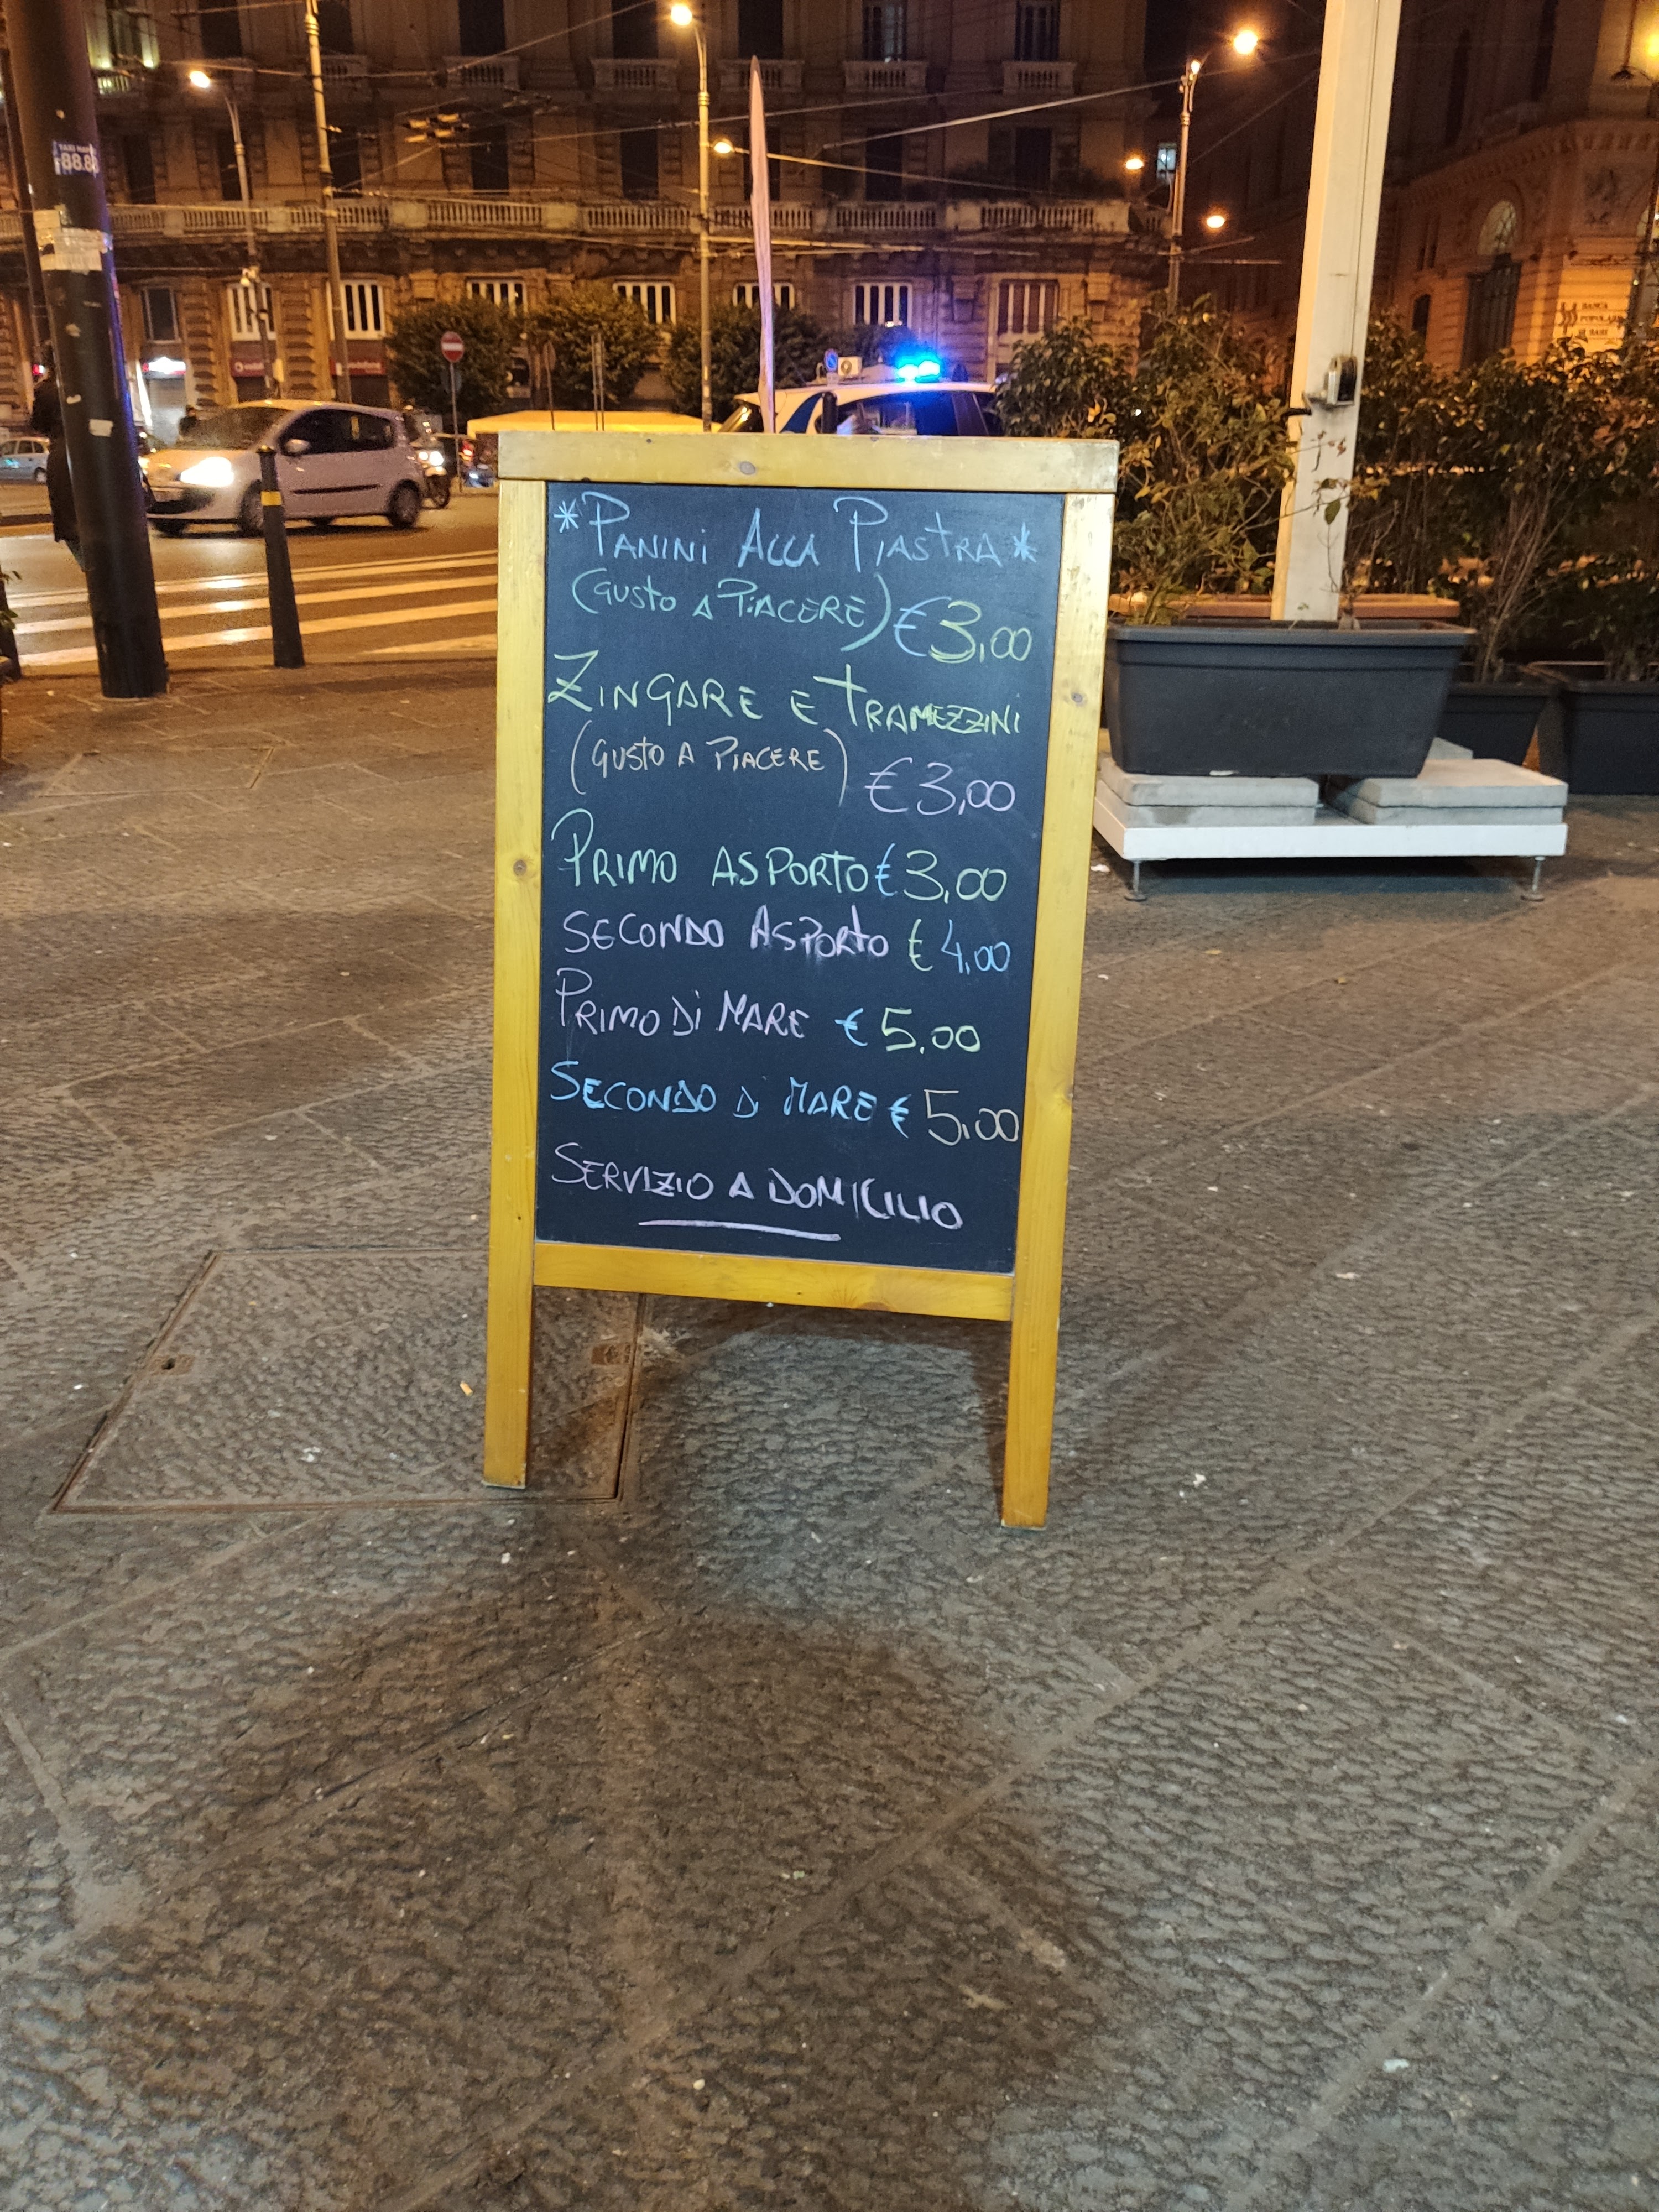 *PANINI ALLA PIASTRA*
(GUSTO A PIACERE) €3,00
ZINGARE E TRAMEZZINI
(GUSTO A PIACERE) €3,00
PRIMO ASPORTO €3,00
SECONDO ASPORTO € 4,00
PRIMO DI MARE € 5,00
SECONDO DI MARE € 5,00
SERVIZIO A DOMICILIO
BANCA
POPOLARE
DI BARI